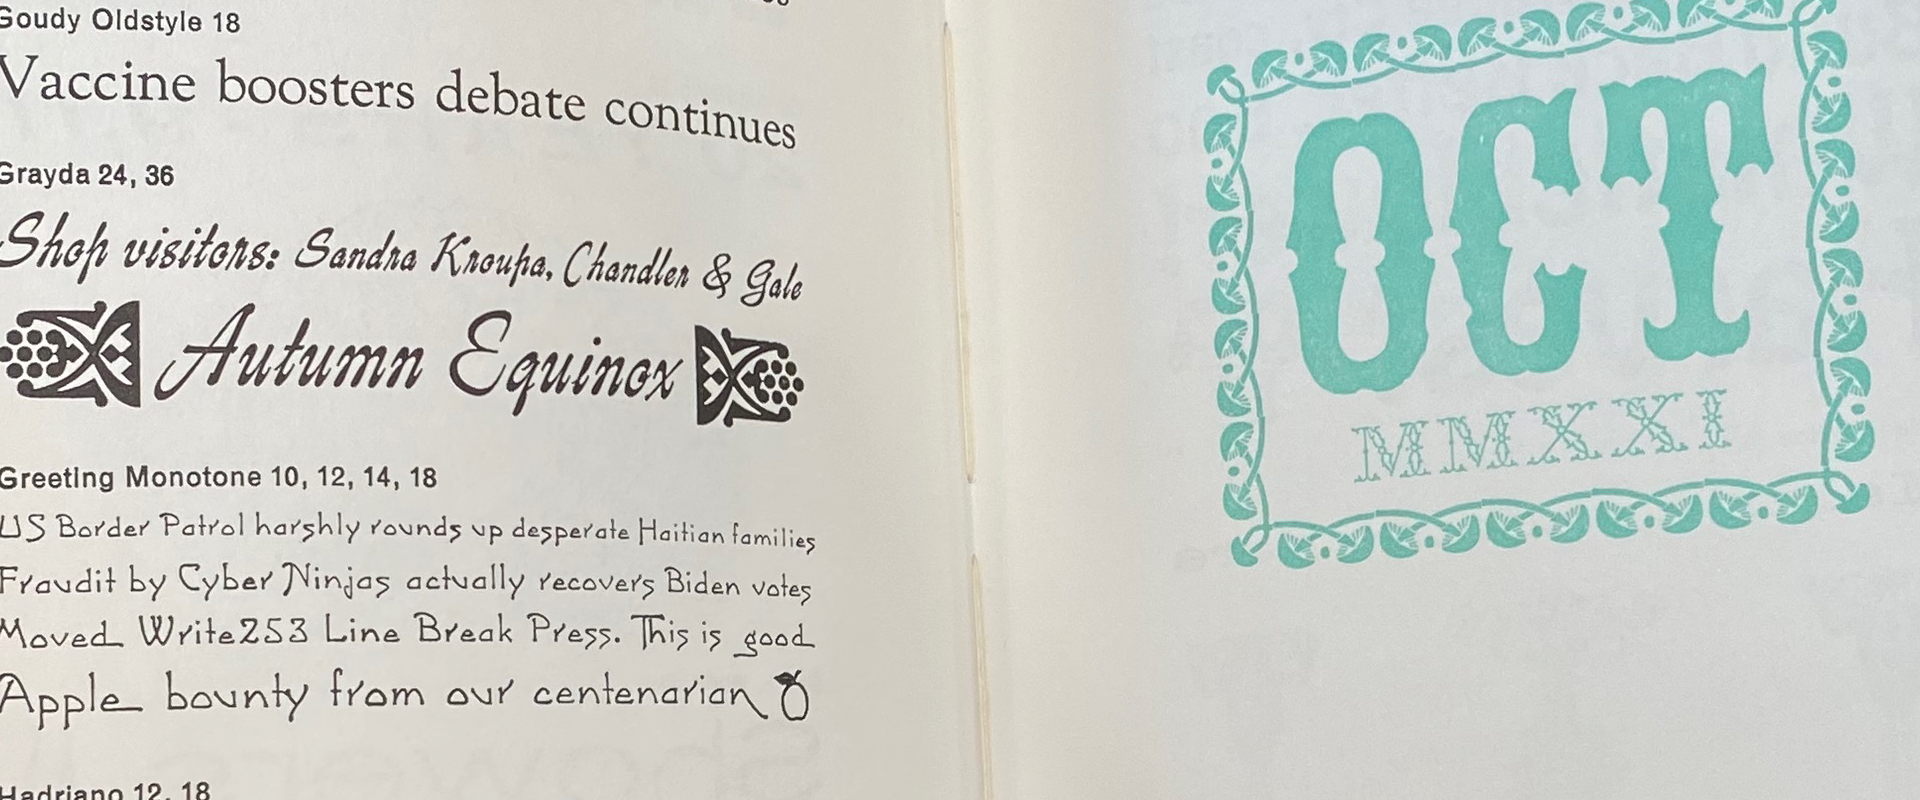 Goudy Oldstyle 18
Vaccine boosters debate continues
Grayda 24, 36
Shop visitors: Sandra Kroupa, Chandler & Gale
Autumn Equinox
Greeting Monotone 10, 12, 14, 18
US Border Patrol harshly rounds up desperate Haitian families
Fraudit by Cyber Ninjas actually recovers Biden votes
Moved Write253 Line Break Press. This is good
Apple bounty from our centenarian
Hadriano 12, 18
OCT
MMXXI